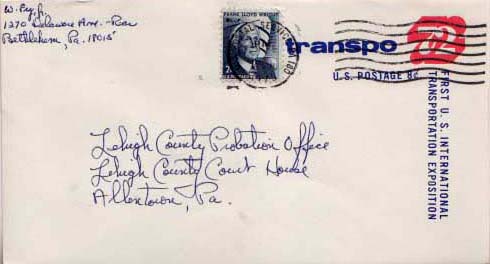 W. Pez, Jr.
1270 Delaware Ave. - Rear
Bethlehem, Pa. 18015
FRANK LLOYD WRIGHT
transpo 72
U.S. POSTAGE 8¢
FIRST U.S. INTERNATIONAL
TRANSPORTATION EXPOSITION
Lehigh County Probation Office
Lehigh County Court House
Allentown, Pa.